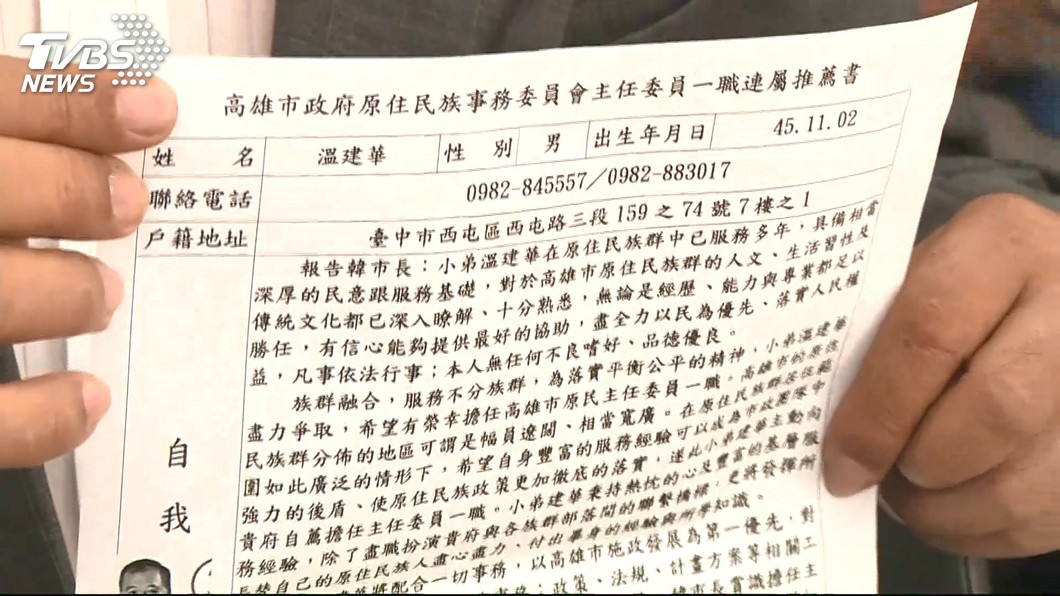 TVBS
NEWS
高雄市政府原住民族事務委員會主任委員一職連屬推薦書
姓 名 溫建華 性 別 男 出生年月日 45.11.02
聯絡電話 0982-845557/0982-883017
戶籍地址 臺中市西屯區西屯路三段159之74號7樓之1
自
我
報告韓市長:小弟溫建華在原住民族群中已服務多年,具備相當
深厚的民意跟服務基礎,對於高雄市原住民族群的人文、生活習性及
傳統文化都已深入瞭解、十分熟悉,無論是經歷、能力與專業都足以
勝任,有信心能夠提供最好的協助,盡全力以民為優先、落實人民權
益,凡事依法行事;本人無任何不良嗜好、品德優良。
族群融合,服務不分族群,為落實平衡公平的精神,小弟溫建華
盡力爭取,希望有榮幸擔任高雄市原民主任委員一職。高雄市的原住
民族群分佈的地區可謂是幅員遼闊、相當寬廣。在原住民族群居住範
圍如此廣泛的情形下,希望自身豐富的服務經驗可以成為市政團隊中
強力的後盾、使原住民族政策更加徹底的落實,遂此小弟建華主動向
貴府自薦擔任主任委員一職。小弟建華秉持熱忱的心及豐富的基層服
務經驗,除了盡職扮演貴府與各族群部落間的聯繫橋樑,更將發揮所
長替自己的原住民族人盡心盡力、付出畢身的經驗與所學知識。
將配合一切事務,以高雄市施政發展為第一優先,對
政策、法規、計畫方案等相關工
市長賞識擔任主